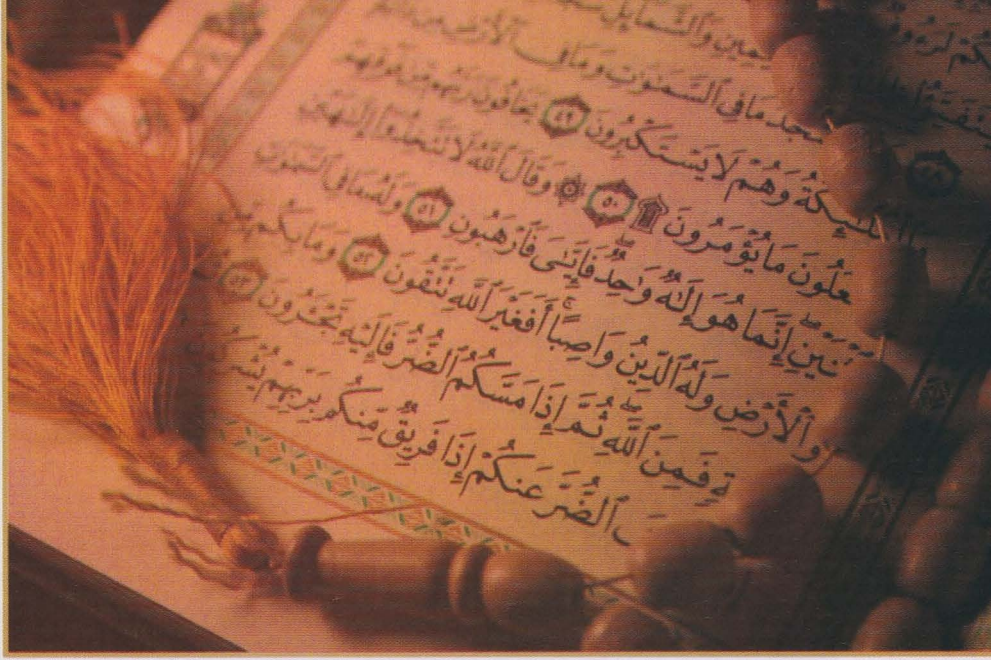 وَٱلشَّمَآئِلِ
يَسْجُدُ مَا فِى ٱلسَّمَٰوَٰتِ وَمَا فِى ٱلْأَرْضِ مِن
ٱلْمَلَٰٓئِكَةُ وَهُمْ لَا يَسْتَكْبِرُونَ ٤٩ يَخَافُونَ رَبَّهُم مِّن فَوْقِهِمْ
عَلُونَ مَا يُؤْمَرُونَ ۩ ٥٠ ۞ وَقَالَ ٱللَّهُ لَا تَتَّخِذُوٓا۟ إِلَٰهَيْنِ
ثْنَيْنِ إِنَّمَا هُوَ إِلَٰهٌ وَٰحِدٌ فَإِيَّٰىَ فَٱرْهَبُونِ ٥١ وَلَهُۥ مَا فِى ٱلسَّمَٰوَٰتِ
وَٱلْأَرْضِ وَلَهُ ٱلدِّينُ وَاصِبًا أَفَغَيْرَ ٱللَّهِ تَتَّقُونَ ٥٢ وَمَا بِكُم
ةٍ فَمِنَ ٱللَّهِ ثُمَّ إِذَا مَسَّكُمُ ٱلضُّرُّ فَإِلَيْهِ تَجْـَٔرُونَ ٥٣
ٱلضُّرَّ عَنكُمْ إِذَا فَرِيقٌ مِّنكُم بِرَبِّهِمْ